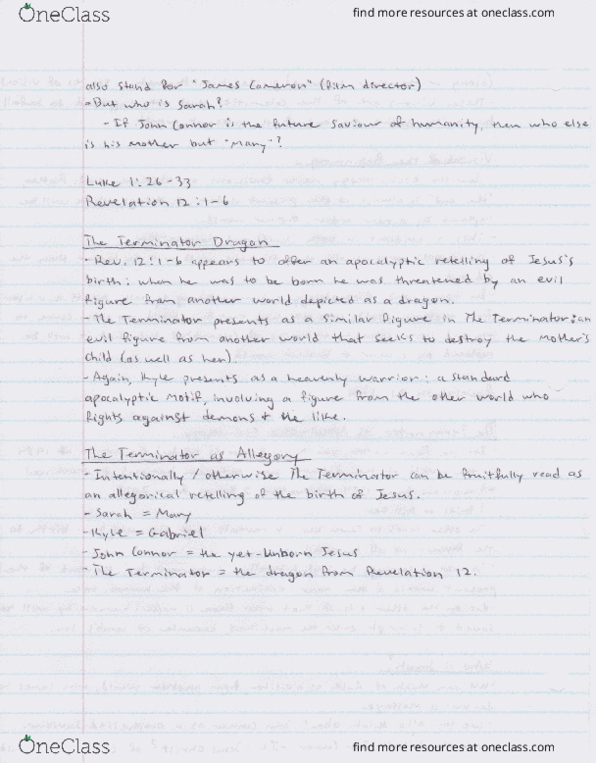 OneClass
find more resources at oneclass.com
also stand for "James Cameron" (film director)
- But who is Sarah?
- If John Connor is the future saviour of humanity, then who else
is his mother but "Mary"?
Luke 1:26-33
Revelation 12:1-6
The Terminator Dragon
- Rev. 12:1-6 appears to offer an apocalyptic retelling of Jesus's
birth: when he was to be born he was threatened by an evil
figure from another world depicted as a dragon.
- The Terminator presents as a similar figure in The Terminator: an
evil figure from another world that seeks to destroy the mother's
child (as well as her).
- Again, Kyle presents as a heavenly warrior: a standard
apocalyptic motif, involving a figure from the other world who
fights against demons + the like.
The Terminator as Allegory
- Intentionally / otherwise The Terminator can be fruitfully read as
an allegorical retelling of the birth of Jesus.
- Sarah = Mary
- Kyle = Gabriel
- John Connor = the yet-unborn Jesus
- The Terminator = the dragon from Revelation 12.
OneClass
find more resources at oneclass.com